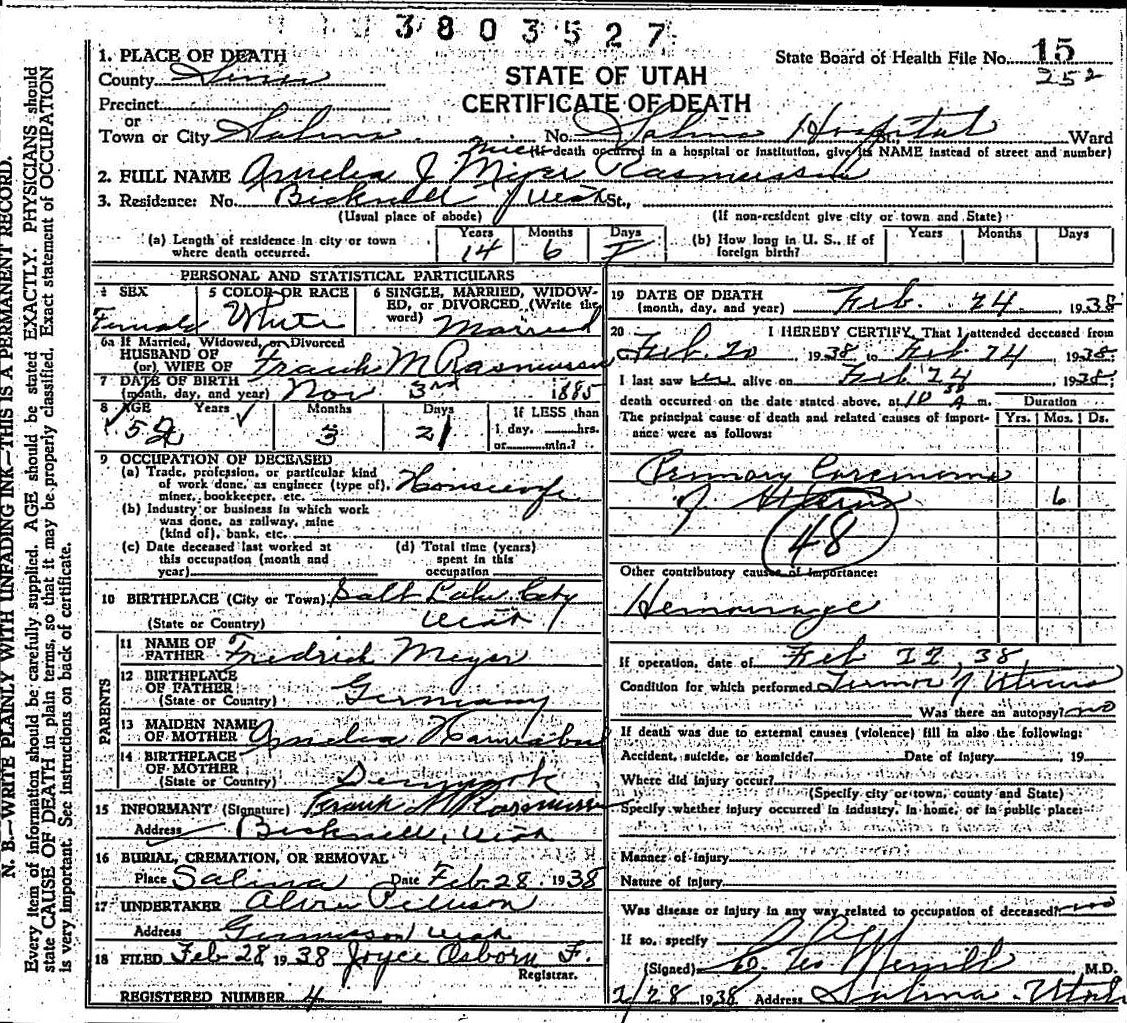 3803527
1. PLACE OF DEATH
State Board of Health File No. 15
252
County Sevier
STATE OF UTAH
CERTIFICATE OF DEATH
Precinct
or
Town or City Salina No. Salina Hospital St., Ward
(If death occurred in a hospital or institution, give its NAME instead of street and number)
2. FULL NAME Amelia J Miyer Rasmussen
3. Residence: No. Bicknell Utah St.,
(Usual place of abode) (If non-resident give city or town and State)
(a) Length of residence in city or town where death occurred. Years 14 Months 6 Days
(b) How long in U. S., if of foreign birth? Years Months Days
PERSONAL AND STATISTICAL PARTICULARS
4 SEX Female
5 COLOR OR RACE White
6 SINGLE, MARRIED, WIDOWED, or DIVORCED, (Write the word) Married
6a If Married, Widowed, or Divorced
HUSBAND OF
(or) WIFE OF Frank M Rasmussen
7 DATE OF BIRTH
(month, day, and year) Nov 3rd 1885
8 AGE Years 52 Months 3 Days 21 If LESS than
1 day, hrs.
or min.?
9 OCCUPATION OF DECEASED
(a) Trade, profession, or particular kind
of work done, as engineer (type of),
miner, bookkeeper, etc. Housewife
(b) Industry or business in which work
was done, as railway, mine
(kind of), bank, etc.
(c) Date deceased last worked at
this occupation (month and
year)
(d) Total time (years)
spent in this
occupation
10 BIRTHPLACE (City or Town) Salt Lake City
(State or Country) Utah
PARENTS
11 NAME OF
FATHER Fredrich Meyer
12 BIRTHPLACE
OF FATHER
(State or Country) Germany
13 MAIDEN NAME
OF MOTHER Amelia
14 BIRTHPLACE
OF MOTHER
(State or Country) Denmark
15 INFORMANT (Signature) Frank M Rasmussen
Address Bicknell, Utah
16 BURIAL, CREMATION, OR REMOVAL
Place Salina Date Feb 28 1938
17 UNDERTAKER
Address Gunnison Utah
18 FILED Feb 28, 1938 Joyce Osborn F.
Registrar.
REGISTERED NUMBER 4
19 DATE OF DEATH
(month, day, and year) Feb. 24 1938
20 I HEREBY CERTIFY, That I attended deceased from
Feb. 20, 1938, to Feb 24, 1938;
I last saw her alive on Feb 24 1938;
death occurred on the date stated above, at 10 30 A m. Duration
The principal cause of death and related causes of importance were as follows: Yrs. Mos. Ds.
Primary Carcinoma
of Uterus 6
48
Other contributory causes of importance:
Hemorrage
If operation, date of Feb 22, 38,
Condition for which performed Tumor of Uterus
Was there an autopsy? no
If death was due to external causes (violence) fill in also the following:
Accident, suicide, or homicide? Date of injury , 19
Where did injury occur?
(Specify city or town, county and State)
Specify whether injury occurred in industry, in home, or in public place:
Manner of injury
Nature of injury
Was disease or injury in any way related to occupation of deceased? no
If so, specify
(Signed) Merrill M.D.
2/28 1938 Address Salina Utah
N. B.—WRITE PLAINLY WITH UNFADING INK—THIS IS A PERMANENT RECORD.
Every item of information should be carefully supplied. AGE should be stated EXACTLY. PHYSICIANS should
state CAUSE OF DEATH in plain terms, so that it may be properly classified. Exact statement of OCCUPATION
is very important. See instructions on back of certificate.